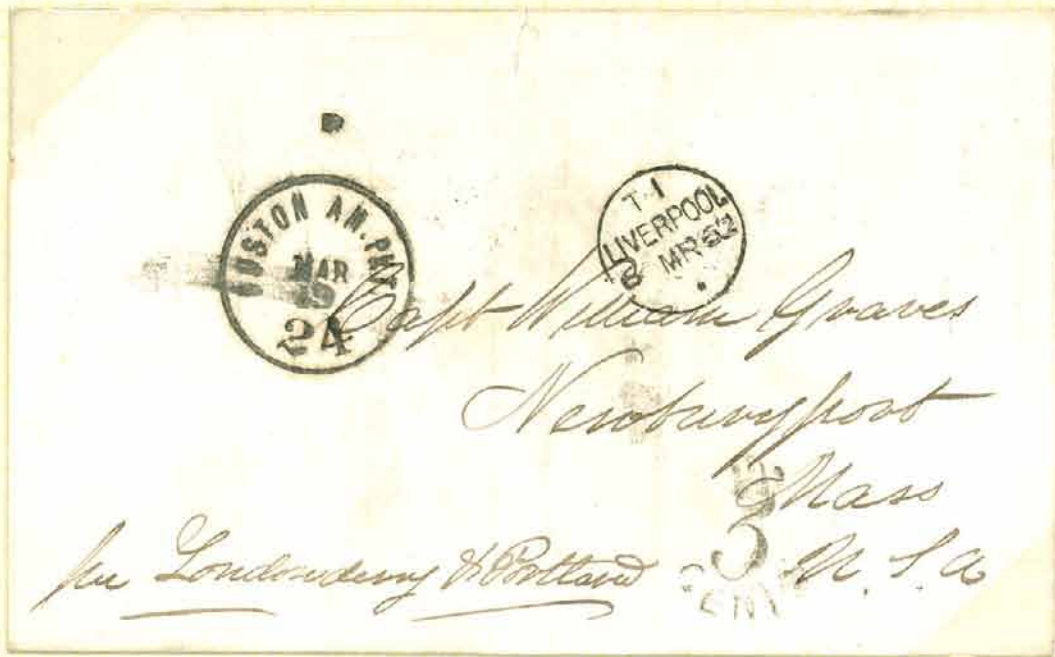 BOSTON AM. PKT
MAR
24
T-1
LIVERPOOL
MR 62
Capt William Graves
Newburyport
Mass
3
CENTS
per Londonderry & Portland
U. S. A